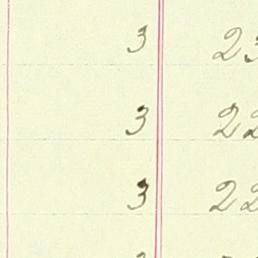 3 23
3 22
3 22